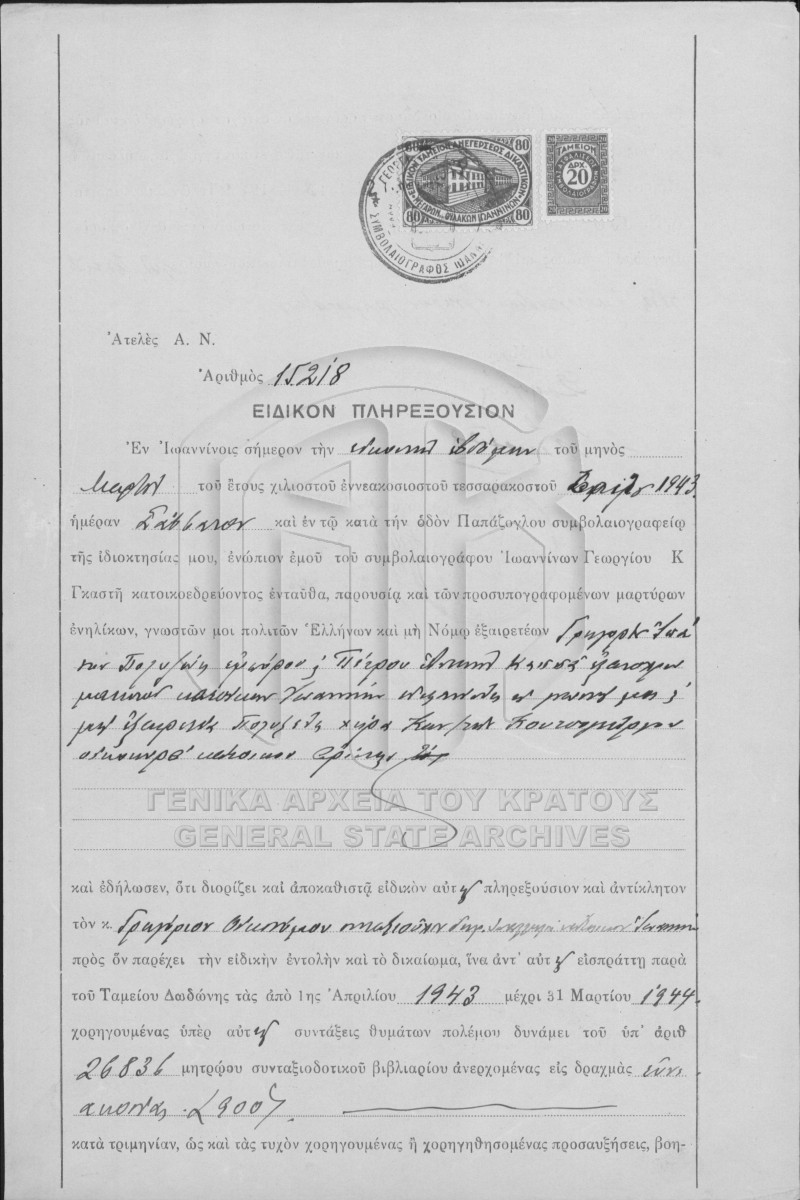 80 80
ΕΙΔΙΚΟΝ ΤΑΜΕΙΟΝ ΑΝΕΓΕΡΣΕΩΣ ΔΙΚΑΣΤΙΚΩΝ
ΜΕΓΑΡΩΝ ΦΥΛΑΚΩΝ ΙΩΑΝΝΙΝΩΝ
80 80
ΤΑΜΕΙΟΝ
ΔΡΧ.
20
ΣΥΜΒΟΛΑΙΟΓΡΑΦΟΣ
Ἀτελὲς Α. Ν.
Ἀριθμὸς 15218
ΕΙΔΙΚΟΝ ΠΛΗΡΕΞΟΥΣΙΟΝ
Ἐν Ἰωαννίνοις σήμερον τὴν εἰκοστὴν ἑβδόμην τοῦ μηνὸς
Μαρτίου τοῦ ἔτους χιλιοστοῦ ἐννεακοσιοστοῦ τεσσαρακοστοῦ τρίτου 1943
ἡμέραν Σάββατον καὶ ἐν τῷ κατὰ τὴν ὁδὸν Παπάζογλου συμβολαιογραφείῳ
τῆς ἰδιοκτησίας μου, ἐνώπιον ἐμοῦ τοῦ συμβολαιογράφου Ἰωαννίνων Γεωργίου Κ
Γκαστῆ κατοικοεδρεύοντος ἐνταῦθα, παρουσίᾳ καὶ τῶν προσυπογραφομένων μαρτύρων
ἐνηλίκων, γνωστῶν μοι πολιτῶν Ἑλλήνων καὶ μὴ Νόμῳ ἐξαιρετέων
Πέτρου
κατοίκων Ἰωαννίνων
χήρα
ΓΕΝΙΚΑ ΑΡΧΕΙΑ ΤΟΥ ΚΡΑΤΟΥΣ
GENERAL STATE ARCHIVES
καὶ ἐδήλωσεν, ὅτι διορίζει καὶ ἀποκαθιστᾷ εἰδικὸν αὐτῆς πληρεξούσιον καὶ ἀντίκλητον
τὸν κ. Γρηγόριον Οἰκονόμου
πρὸς ὃν παρέχει τὴν εἰδικὴν ἐντολὴν καὶ τὸ δικαίωμα, ἵνα ἀντ' αὐτῆς εἰσπράττῃ παρὰ
τοῦ Ταμείου Δωδώνης τὰς ἀπὸ 1ης Ἀπριλίου 1943 μέχρι 31 Μαρτίου 1944.
χορηγουμένας ὑπὲρ αὐτῆς συντάξεις θυμάτων πολέμου δυνάμει τοῦ ὑπ' ἀριθ
26836 μητρῴου συνταξιοδοτικοῦ βιβλιαρίου ἀνερχομένας εἰς δραχμὰς ἐννε
ακοσίας (900).
κατὰ τριμηνίαν, ὡς καὶ τὰς τυχὸν χορηγουμένας ἢ χορηγηθησομένας προσαυξήσεις, βοη-